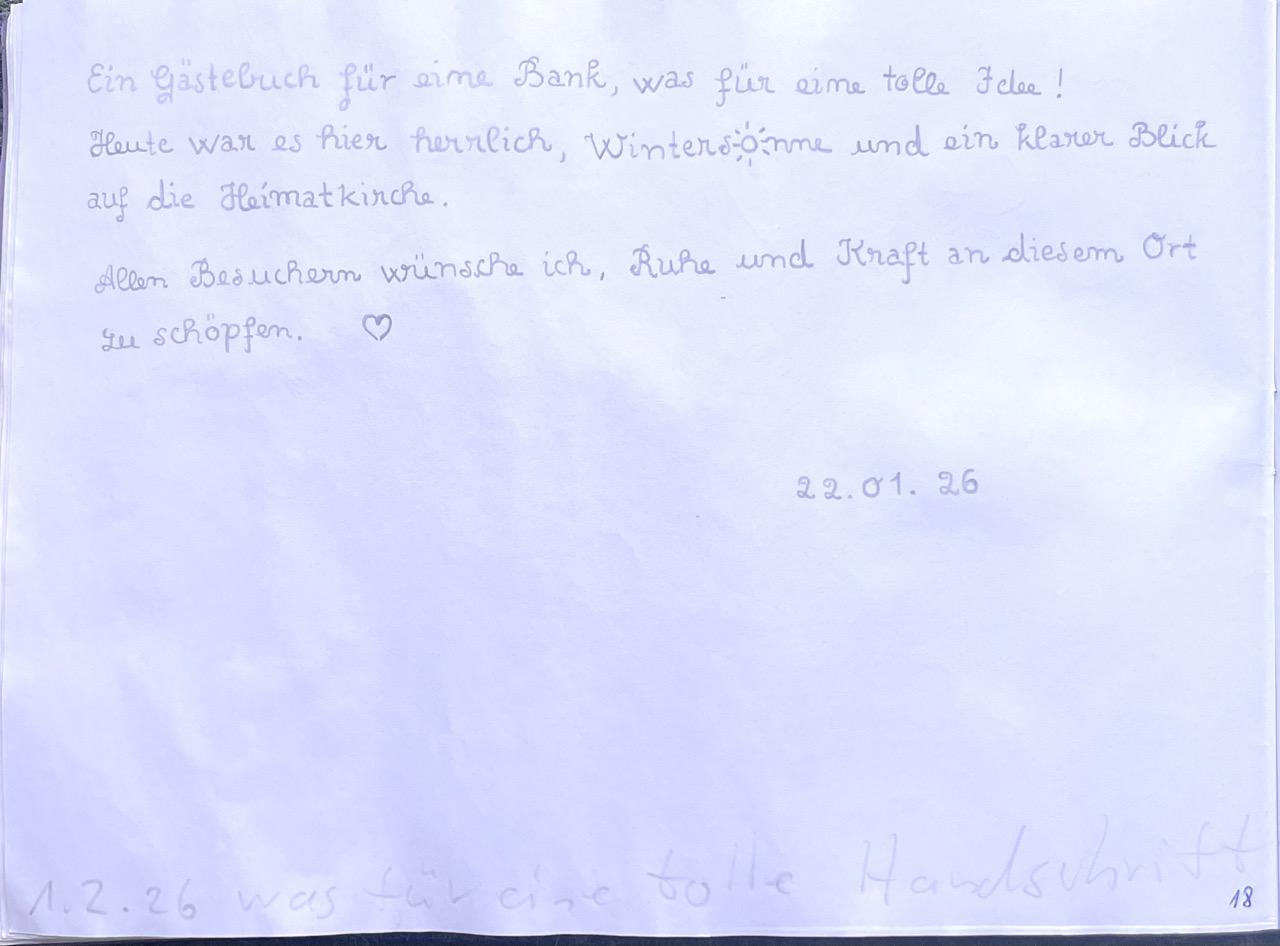 Ein Gästebuch für eine Bank, was für eine tolle Idee!
Heute war es hier herrlich, Wintersonne und ein klarer Blick
auf die Heimatkirche.
Allen Besuchern wünsche ich, Ruhe und Kraft an diesem Ort
zu schöpfen. ♡
22.01.26
1.2.26 was für eine tolle Handschrift
18